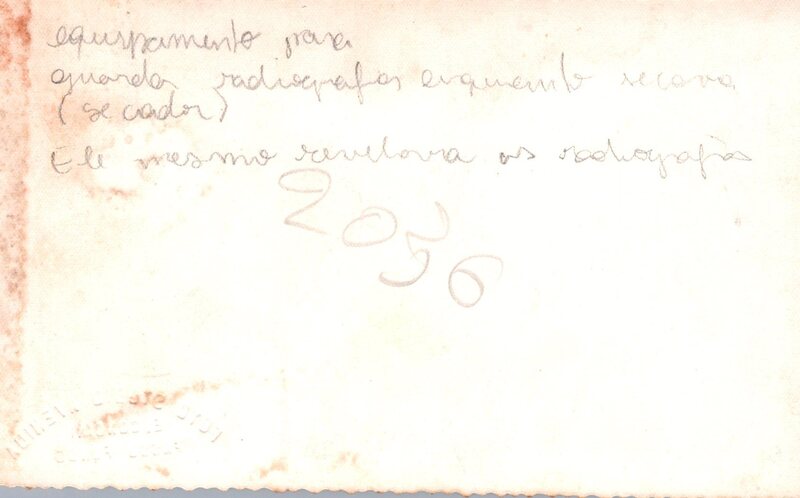 equipamento para
guardar radiografias enquanto secava
(secador)
Ele mesmo revelava as radiografias
2056